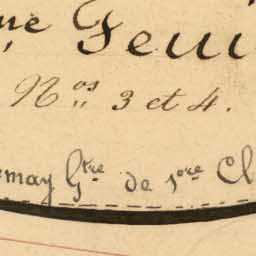 me Feui
Nos 3 et 4.
emay Gtre de 1ore Cl